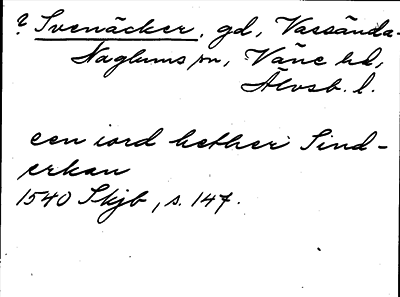 ? Svenäcker, gd, Vassända-
Naglums sn, Väne hd,
Älvsb. l.
een iord hether Sind-
erkan
1540 Skjb, s. 147.